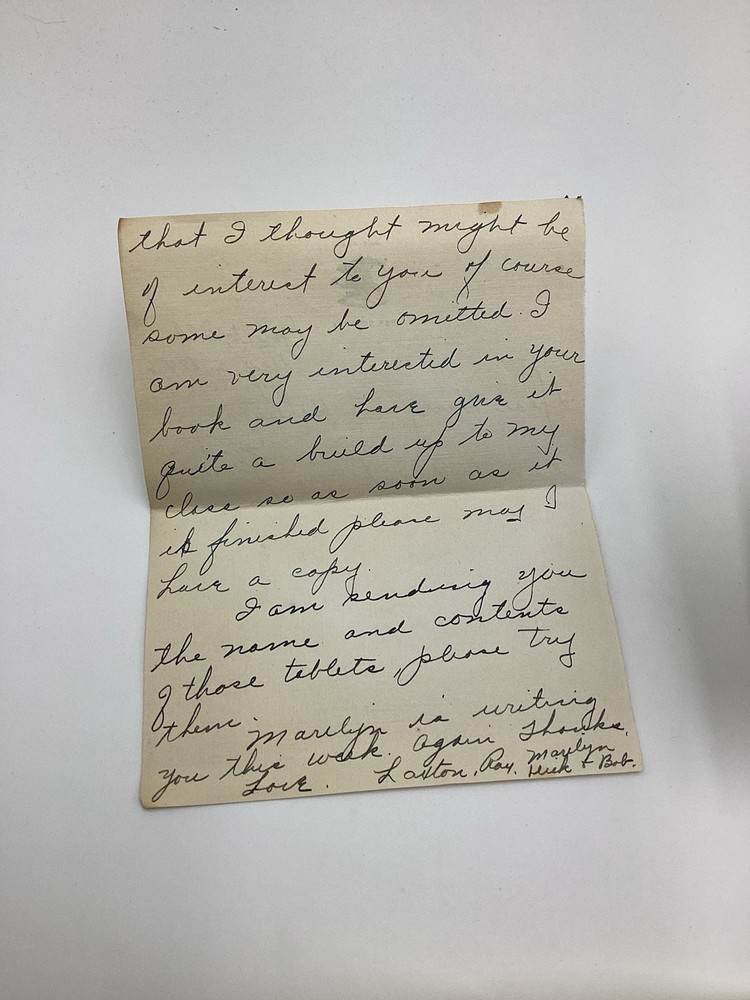 that I thought might be
of interest to you of course
some may be omitted. I
am very interested in your
book and have give it
quite a build up to my
class so as soon as it
is finished please may I
have a copy.
I am sending you
the name and contents
of those tablets, please try
them. Marilyn is writing
you this week. Again Thanks.
Love. Laxton, Ray, Marilyn
+ Bob.